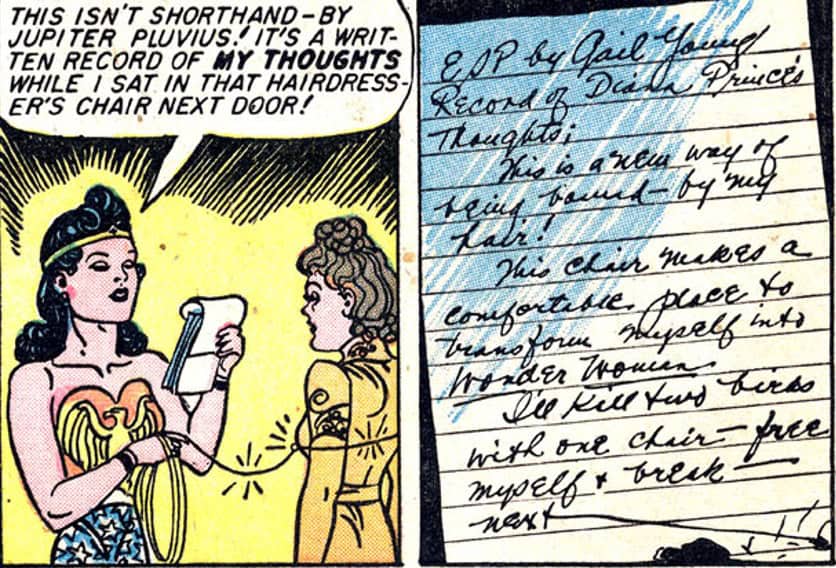 THIS ISN'T SHORTHAND-BY
JUPITER PLUVIUS! IT'S A WRIT-
TEN RECORD OF MY THOUGHTS
WHILE I SAT IN THAT HAIRDRESS-
ER'S CHAIR NEXT DOOR!
ESP by Gail Young
Record of Diana Prince's
Thoughts;
This is a new way of
being bound - by my
hair!
This chair makes a
comfortable place to
transform myself into
Wonder Woman
I'll kill two birds
with one chair - free
myself + break —
next